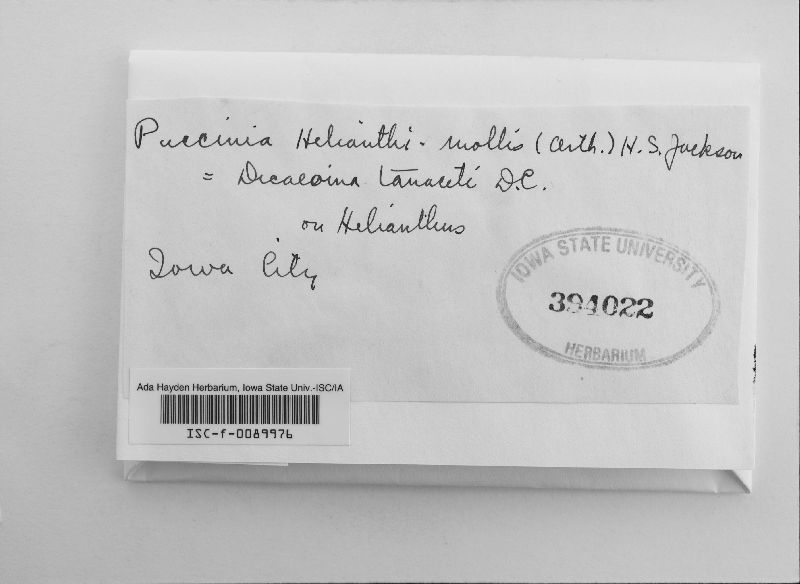 Puccinia Helianthi-mollis (Arth.) H. S. Jackson
= Dicaeoma tanaceti D.C.
on Helianthus
Iowa City
IOWA STATE UNIVERSITY
394022
HERBARIUM
Ada Hayden Herbarium, Iowa State Univ.-ISC/IA
ISC-f-0089976